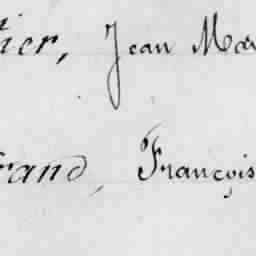 tier, Jean Mar
rand, François